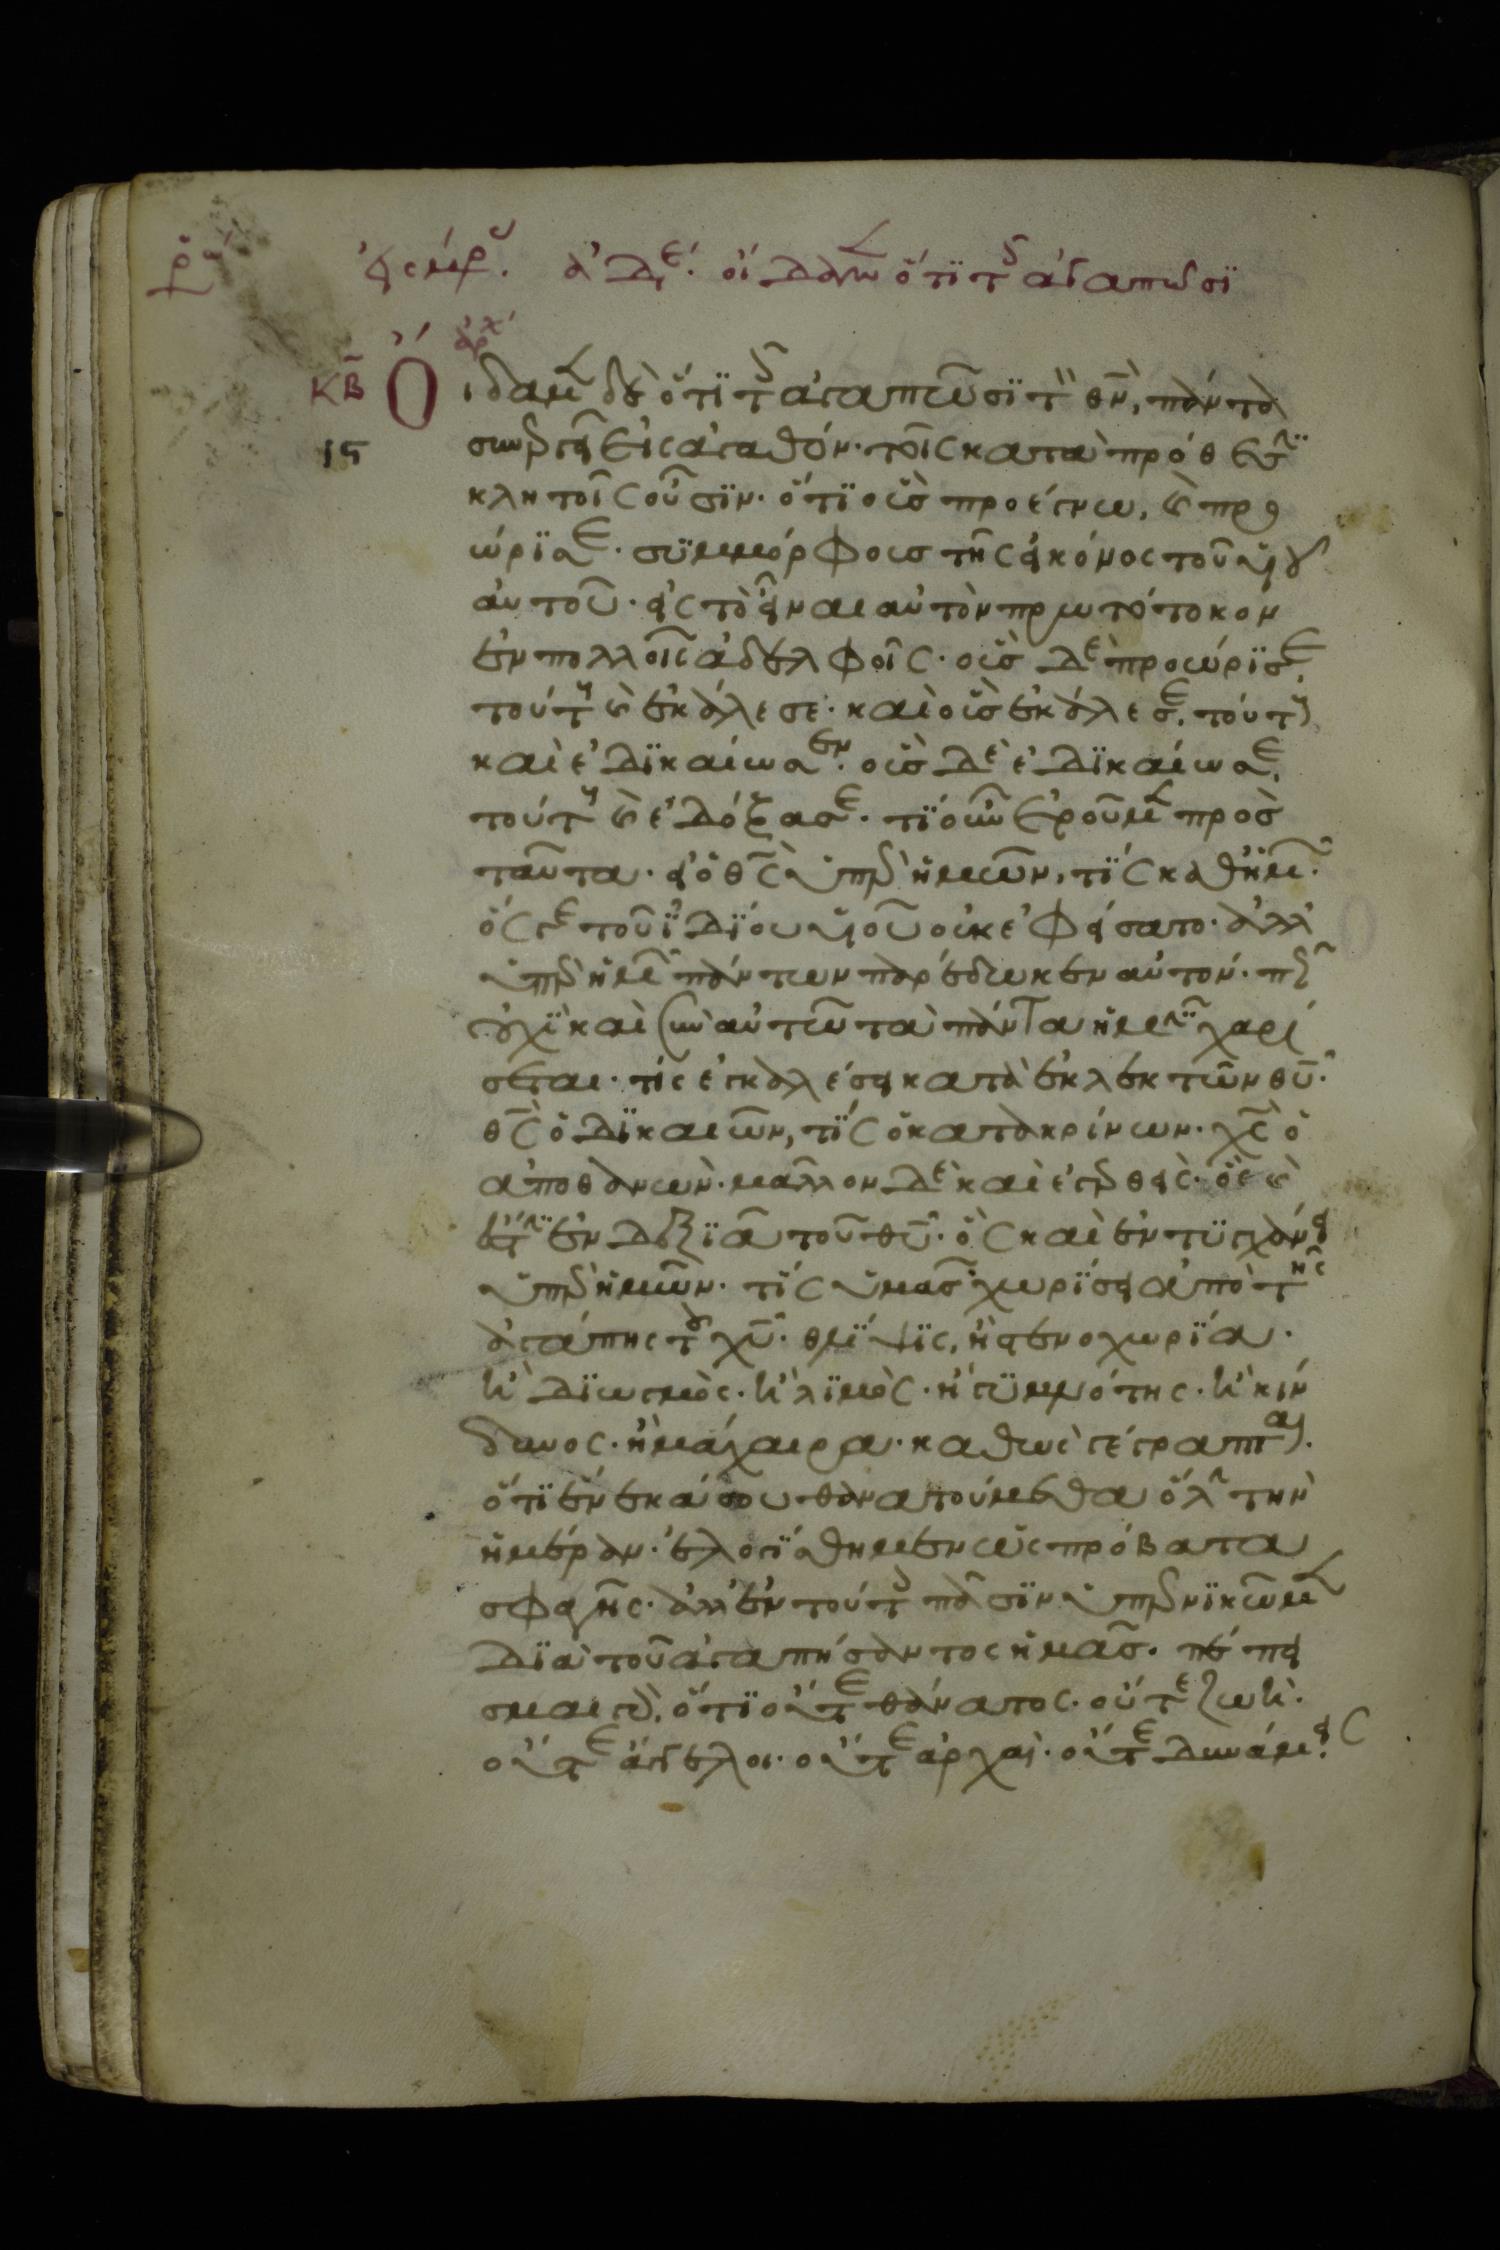 οἴδαμ ὅτι τ ἀγαπῶσι
ἀρχ
κβ Οἴδαμ δὲ ὅτι τ ἀγαπῶσι τ θν, πάντα
ις συνεργεῖ εἰς ἀγαθόν· τοῖς κατὰ πρόθεσ
κλητοῖς οὖσιν· ὅτι οὓς προέγνω, καὶ προ
ώρισε· συμμόρφους τῆς εἰκόνος τοῦ υἱοῦ
αὐτοῦ· εἰς τὸ εἶναι αὐτὸν πρωτότοκον
ἐν πολλοῖς ἀδελφοῖς· οὓς δὲ προώρισε,
τούτ καὶ ἐκάλεσε· καὶ οὓς ἐκάλεσε, τούτ
καὶ ἐδικαίωσεν· οὓς δὲ ἐδικαίωσε,
τούτ καὶ ἐδόξασε· τί οὖν ἐροῦμ πρὸς
ταῦτα· εἰ ὁ θς ὑπὲρ ἡμῶν, τίς καθ ἡμ·
ὅς γε τοῦ ἰδίου υἱοῦ οὐκ ἐφείσατο· ἀλλ
ὑπὲρ ἡμ πάντων παρέδωκεν αὐτόν· πῶς
οὐχὶ καὶ σὺν αὐτῶ τὰ πάντα ἡμῖν χαρί
σεται· τίς ἐγκαλέσει κατὰ ἐκλεκτῶν θυ·
θς ὁ δικαιῶν, τίς ὁ κατακρίνων· χς ὁ
ἀποθανών· μᾶλλον δὲ καὶ ἐγερθείς· ὃς καὶ
ἔστιν ἐν δεξιᾶ τοῦ θυ· ὃς καὶ ἐντυγχάνει
ὑπὲρ ἡμῶν· τίς ὑμᾶς χωρίσει ἀπὸ τῆς
ἀγάπης τοῦ χυ· θλίψις, ἢ στενοχωρία·
ἢ διωγμός· ἢ λιμός· ἢ γυμνότης· ἢ κίν
δυνος· ἢ μάχαιρα· καθὼς γέγραπται·
ὅτι ἕνεκά σου θανατούμεθα ὅλην τὴν
ἡμέραν· ἐλογίσθημεν ὡς πρόβατα
σφαγῆς· ἀλλ ἐν τούτ πᾶσιν ὑπερνικῶμ
διὰ τοῦ ἀγαπήσαντος ἡμᾶς· πέπει
σμαι γὰρ, ὅτι οὔτε θάνατος· οὔτε ζωὴ·
οὔτε ἄγγελοι· οὔτε ἀρχαὶ· οὔτε δυνάμεις